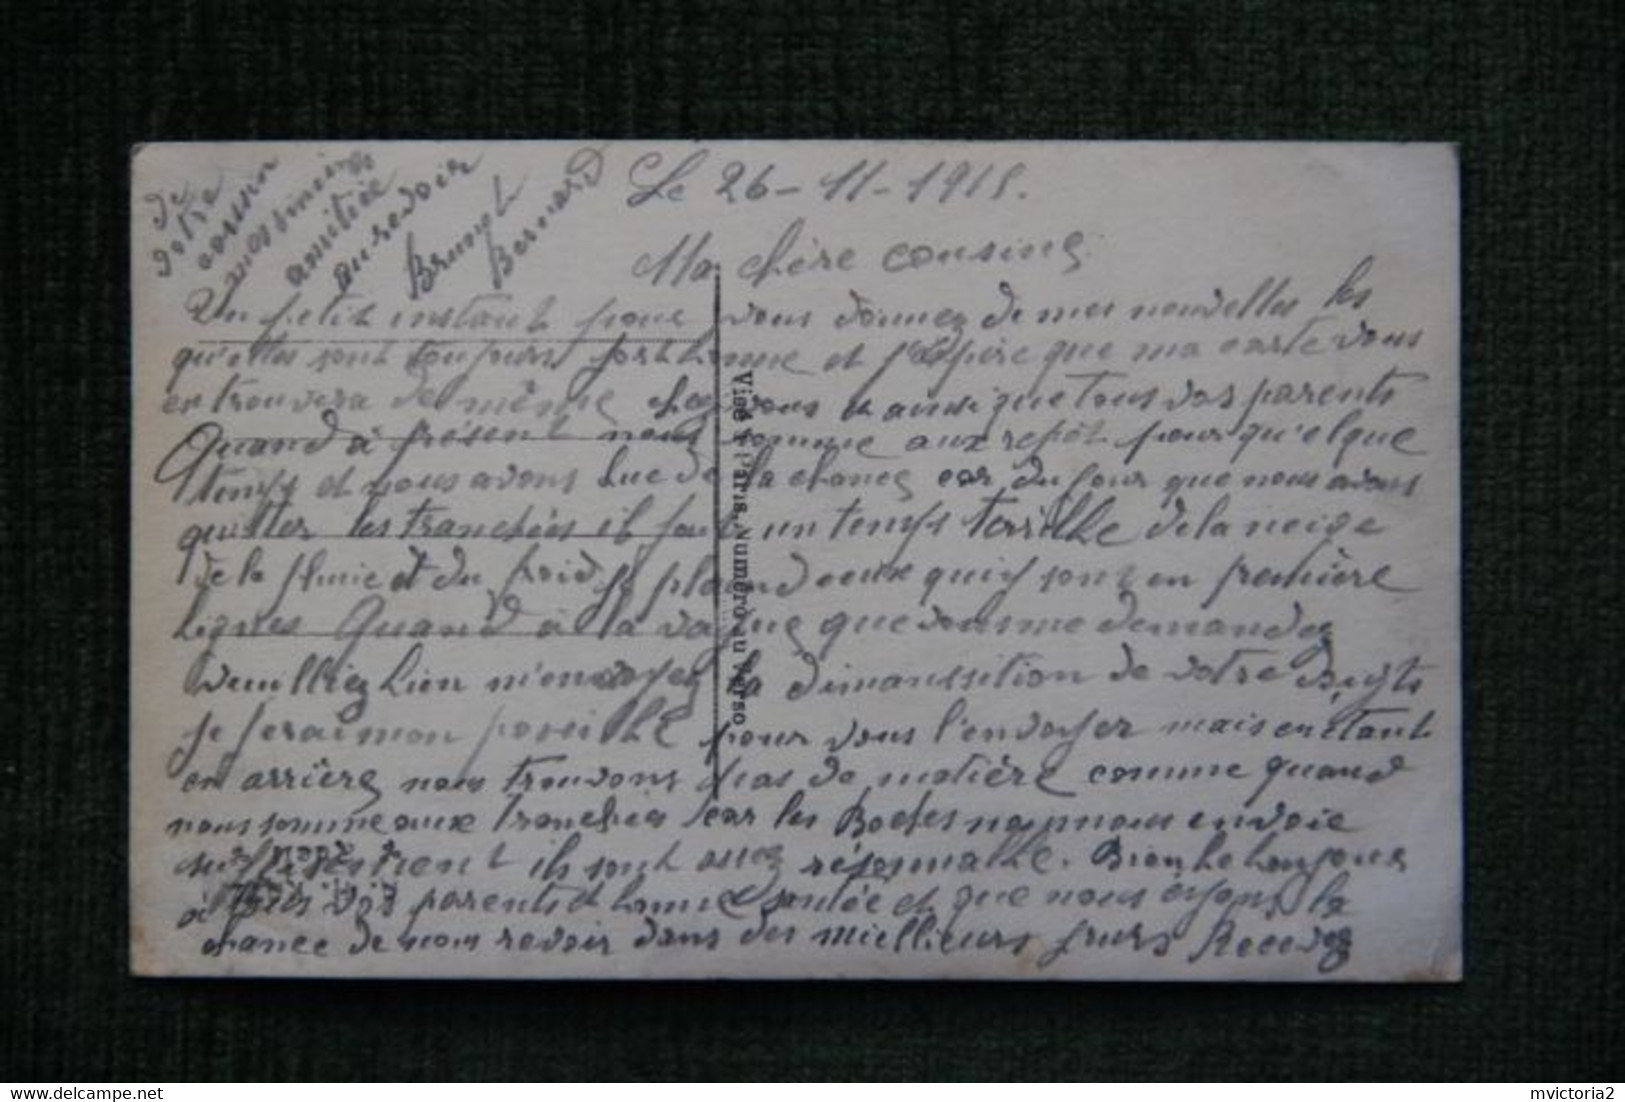 Le 26-11-1915.
Ma chère cousine
Un petit instant pour vous donnez de mes nouvelles les
qu'elles sont toujours fort bonne et j'espère que ma carte vous
en trouvera de même chez vous et ainsi que tous vos parents
Quand à présent nous somme aux repôt pour qu'elque
temps et nous avons hue de la chance car du jour que nous avons
quitter les tranchées il fait un temps terrible de la neige
de la pluie et du froid je plaind ceux qui y sont en première
lignes Quand à la bague que vous me demandez
veuilliez bien m'envoyez la dimanssition de votre Doigts
je ferai mon possible pour vous l'envoyer mais en étant
en arrière nous trouvons pas de matière comme quand
nous somme aux tranchées car les Boches nous en envoie
suffisentment ils sont assez résonnable. Bien le bonjour
à tous vos parents et bonne santée et que nous ayons la
chance de nous revoir dans des mielleurs jours Recevez
de
votre
cousin
mes sincères
amitiée
au revoir
Brunot
Bernard
Visé Paris. Numéro au Verso
www.delcampe.net
mvictoria2